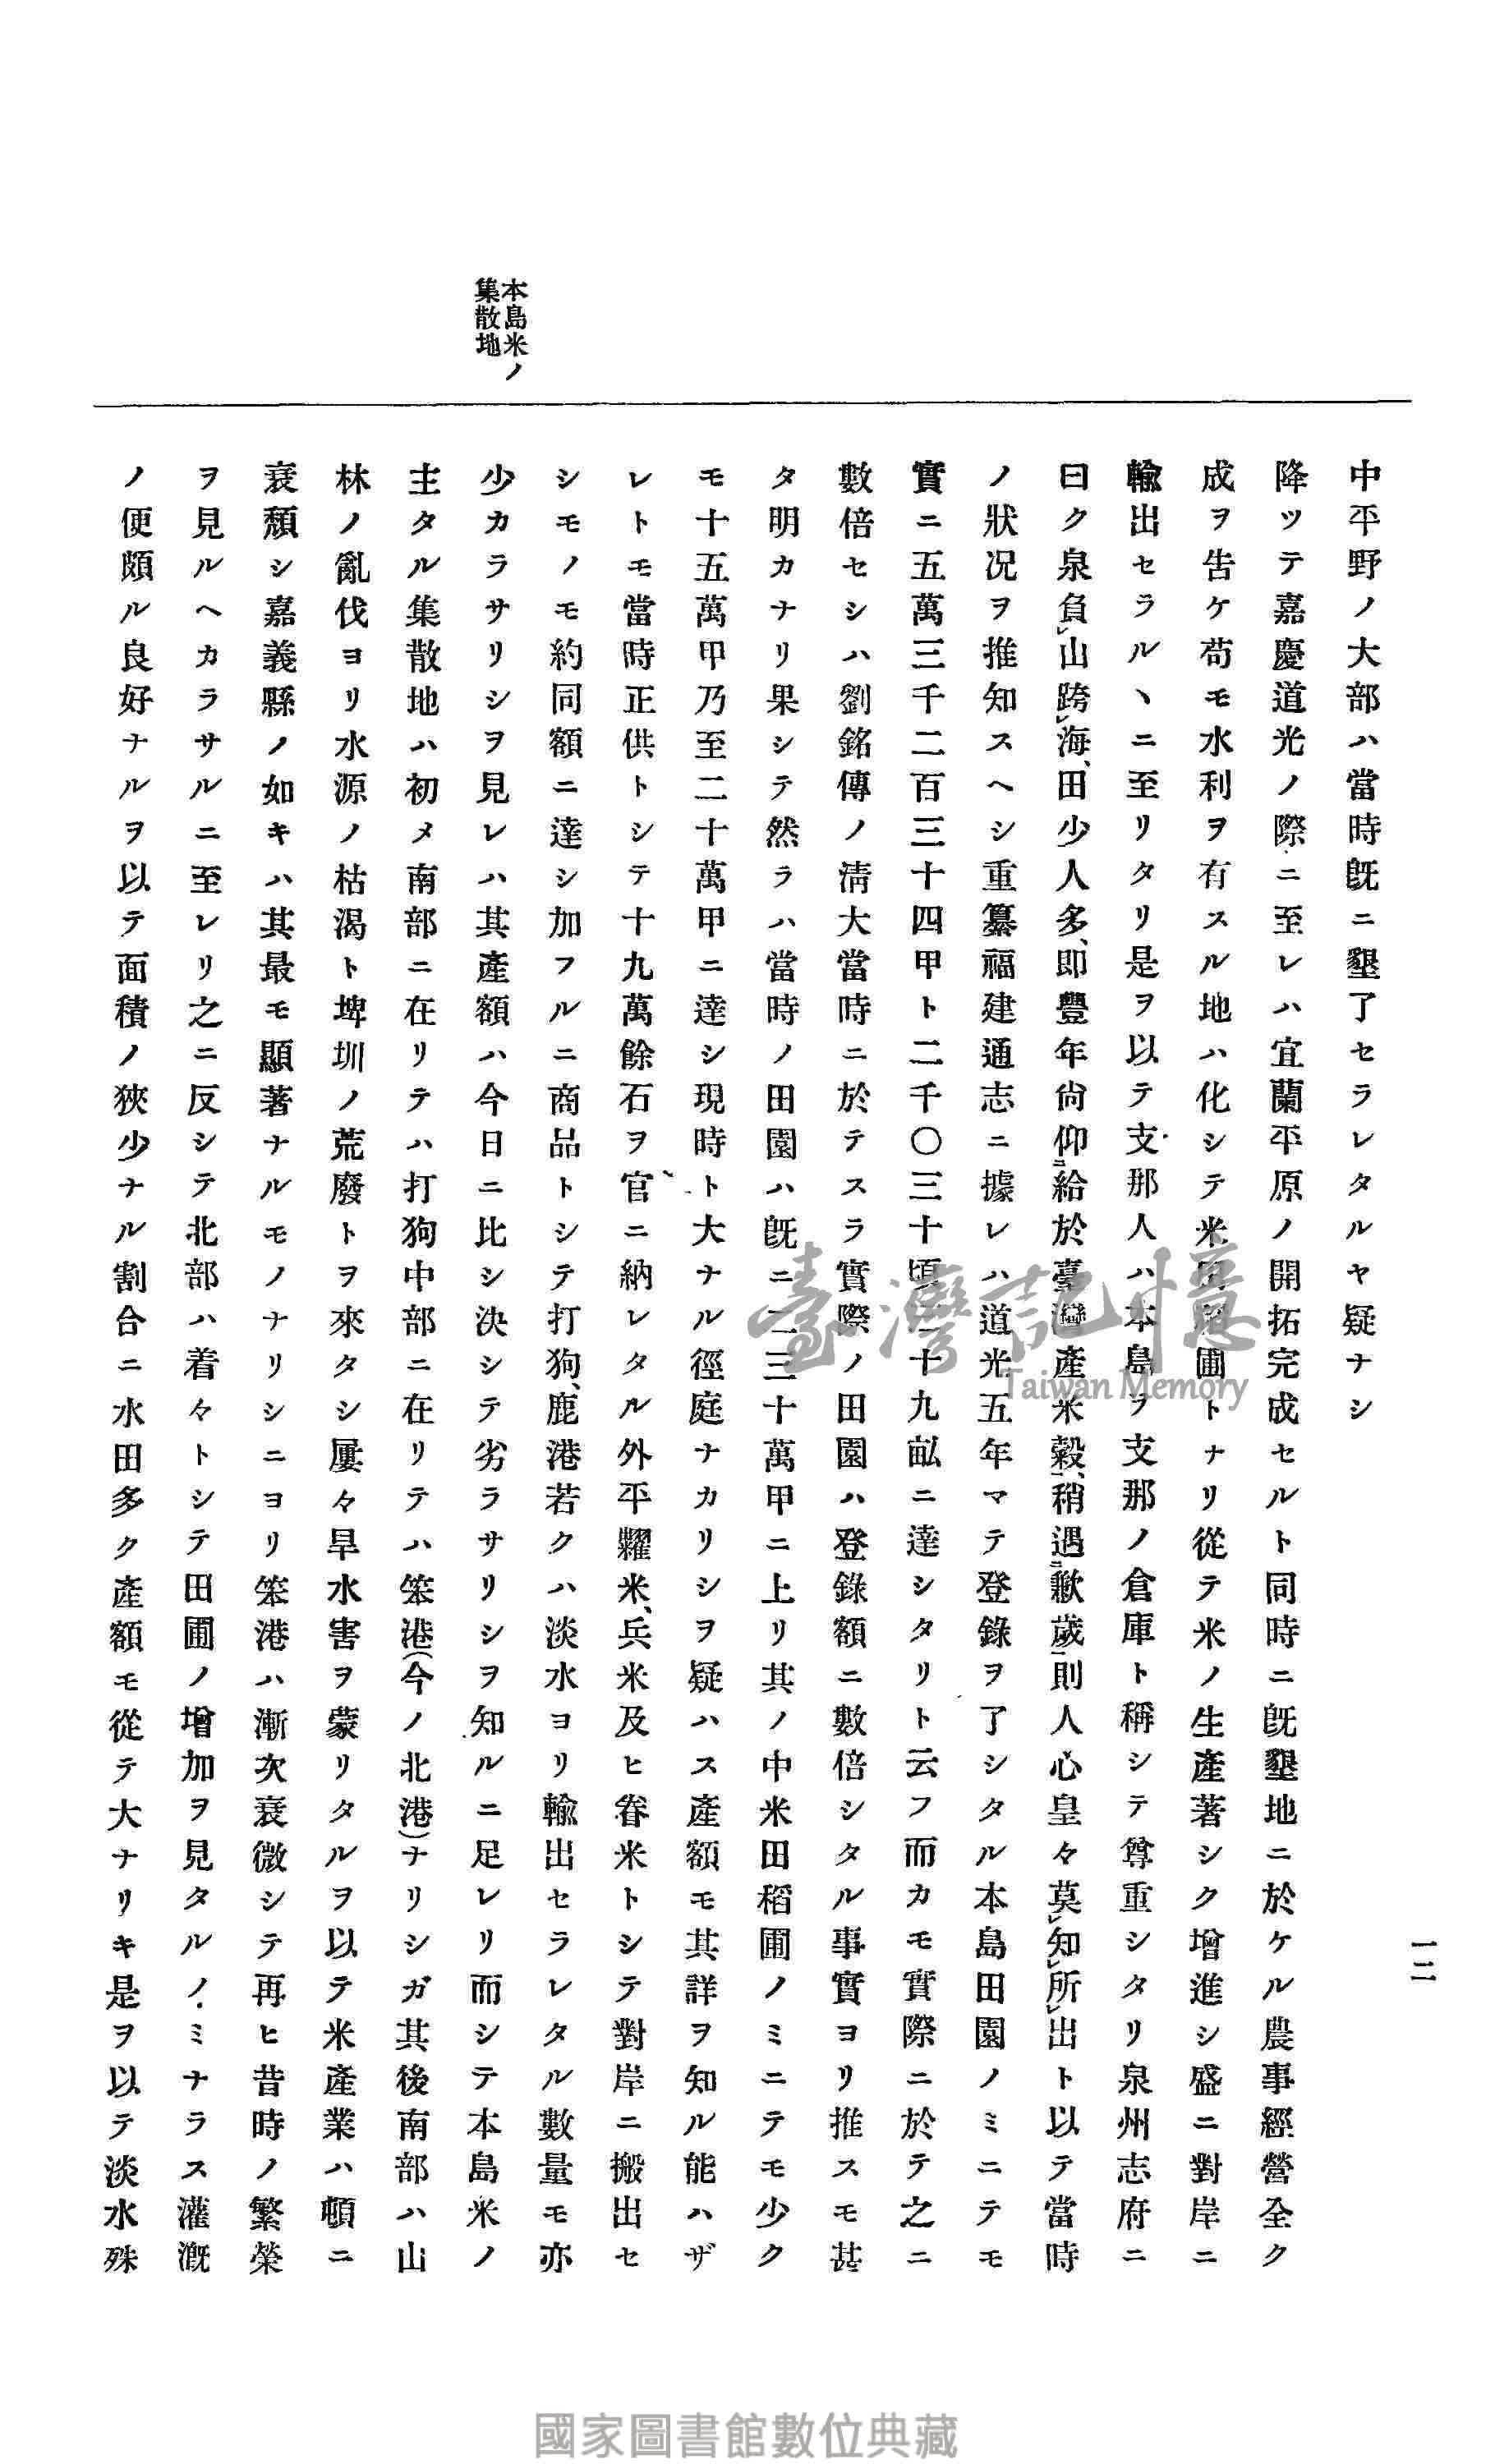 一二
本島米ノ
集散地
中平野ノ大部ハ當時旣ニ墾了セラレタルヤ疑ナシ
降ツテ嘉慶道光ノ際ニ至レハ宜蘭平原ノ開拓完成セルト同時ニ旣墾地ニ於ケル農事經營全ク
成ヲ告ケ苟モ水利ヲ有スル地ハ化シテ米田稻圃トナリ從テ米ノ生產著シク增進シ盛ニ對岸ニ
輸出セラルヽニ至リタリ是ヲ以テ支那人ハ本島ヲ支那ノ倉庫ト稱シテ尊重シタリ泉州志府ニ
曰ク泉負レ山跨レ海、田少人多、卽豐年尙仰ニ給於臺灣產米穀一、稍遇ニ歉歲一則人心皇々莫レ知レ所レ出ト以テ當時
ノ狀況ヲ推知スヘシ重纂福建通志ニ據レハ道光五年マテ登錄ヲ了シタル本島田園ノミニテモ
實ニ五萬三千二百三十四甲ト二千〇三十頃三十九畝ニ達シタリト云フ而カモ實際ニ於テ之ニ
數倍セシハ劉銘傳ノ淸大當時ニ於テスラ實際ノ田園ハ登錄額ニ數倍シタル事實ヨリ推スモ甚
タ明カナリ果シテ然ラハ當時ノ田園ハ旣ニ二三十萬甲ニ上リ其ノ中米田稻圃ノミニテモ少ク
モ十五萬甲乃至二十萬甲ニ達シ現時ト大ナル徑庭ナカリシヲ疑ハス產額モ其詳ヲ知ル能ハザ
レトモ當時正供トシテ十九萬餘石ヲ官ニ納レタル外平糶米、兵米及ヒ眷米トシテ對岸ニ搬出セ
シモノモ約同額ニ達シ加フルニ商品トシテ打狗、鹿港若クハ淡水ヨリ輸出セラレタル數量モ亦
少カラサリシヲ見レハ其產額ハ今日ニ比シ決シテ劣ラサリシヲ知ルニ足レリ而シテ本島米ノ
主タル集散地ハ初メ南部ニ在リテハ打狗中部ニ在リテハ笨港(今ノ北港)ナリシガ其後南部ハ山
林ノ亂伐ヨリ水源ノ枯渴ト埤圳ノ荒廢トヲ來タシ屢々旱水害ヲ蒙リタルヲ以テ米產業ハ頓ニ
衰頹シ嘉義縣ノ如キハ其最モ顯著ナルモノナリシニヨリ笨港ハ漸次衰微シテ再ヒ昔時ノ繁榮
ヲ見ルヘカラサルニ至レリ之ニ反シテ北部ハ着々トシテ田圃ノ增加ヲ見タルノミナラス灌漑
ノ便頗ル良好ナルヲ以テ面積ノ狹少ナル割合ニ水田多ク產額モ從テ大ナリキ是ヲ以テ淡水殊
臺灣記憶
Taiwan Memory
國家圖書館數位典藏